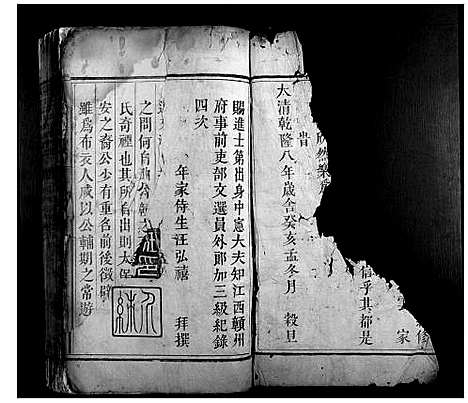 修
家
信乎其都是
欣然樂
皆
大清乾隆八年歲舍癸亥孟冬月 穀旦
賜進士第出身中憲大夫知江西贛州
府事前吏部文選員外郎加三級紀錄
四次
年家侍生汪弘禧 拜撰
之問何自
氏奇禋也其所自出則大保
安之裔公少有重名前後徵辟
雖為布衣人咸以公輔期之常遊